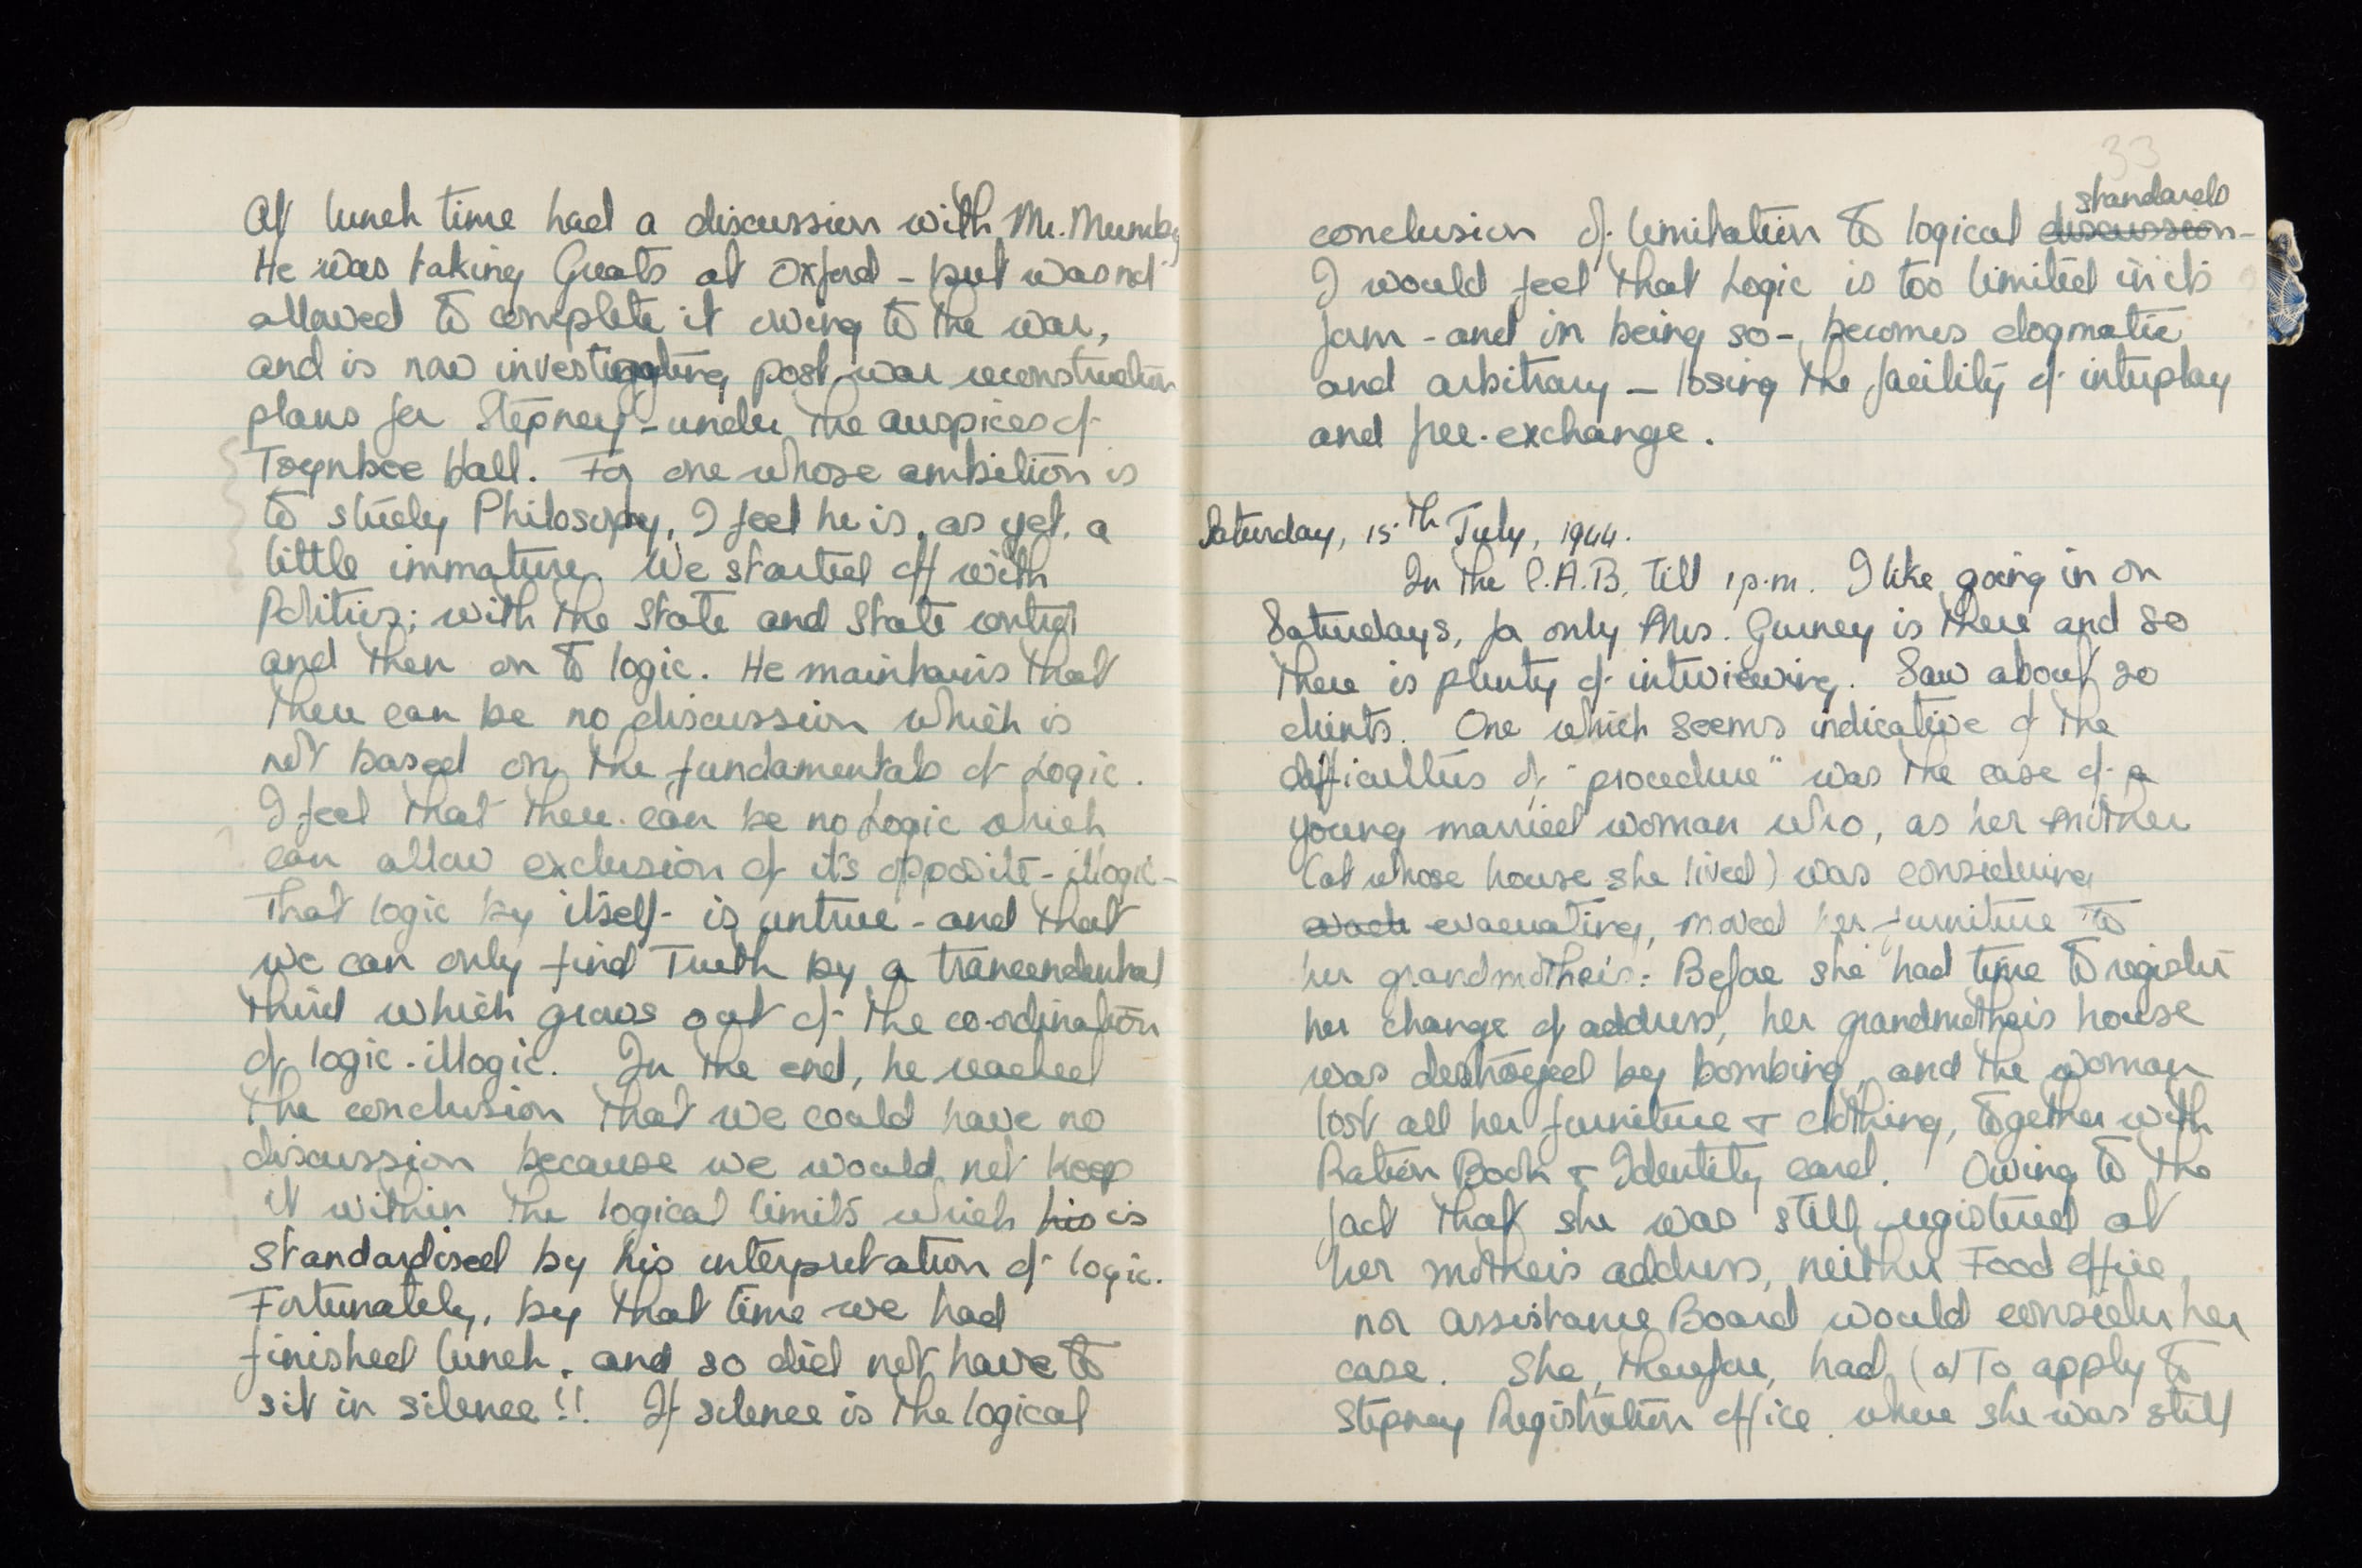 At lunch time had a discussion with Mr. Mumby
He was taking Greats at Oxford - but was not
allowed to complete it owing to the war,
and is now investigating post war reconstruction
plans for Stepney - under the auspices of
Toynbee Hall. For one whose ambition is
to study Philosophy, I feel he is, as yet, a
little immature. We started off with
Politics; with the State and State control
and then on to logic. He maintains that
there can be no discussion which is
not based on the fundamentals of Logic.
I feel that there can be no Logic which
can allow exclusion of it's opposite - illogic -
That logic by itself - is untrue - and that
we can only find Truth by a trancendental
third which grows out of the co-ordination
of logic - illogic. In the end, he reached
the conclusion that we could have no
discussion because we would not keep
it within the logical limits which his is
standardised by his interpretation of logic.
Fortunately, by that time we had
finished lunch, and so did not have to
sit in silence!! If silence is the logical
33
standards
conclusion of limitation to logical discussion -
I would feel that Logic is too limited in its
form - and in being so - becomes dogmatic
and arbitrary - losing the facility of interplay
and free-exchange.
Saturday, 15th July, 1944.
In the C.A.B. till 1 p.m. I like going in on
Saturdays, for only Mrs. Gurney is there and so
there is plenty of interviewing. Saw about 20
clients. One which seems indicative of the
difficulties of "procedure" was the case of a
young married woman who, as her mother
(at whose house she lived) was considering
evacuating, moved her furniture to
her grandmother's. Before she had time to register
her change of address, her grandmother's house
was destroyed by bombing, and the woman
lost all her furniture & clothing, together with
Ration Book & Identity card. Owing to the
fact that she was still registered at
her mother's address, neither Food Office,
nor Assistance Board would consider her
case. She, therefore, had (a) To apply to
Stepney Registration Office, where she was still